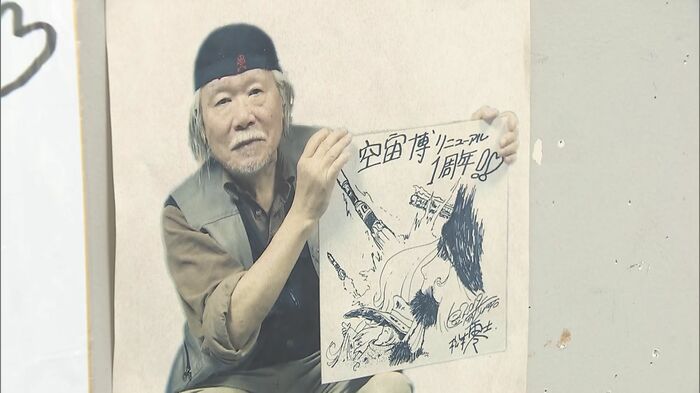 空宙博リニューアル
1周年!!
松本零士